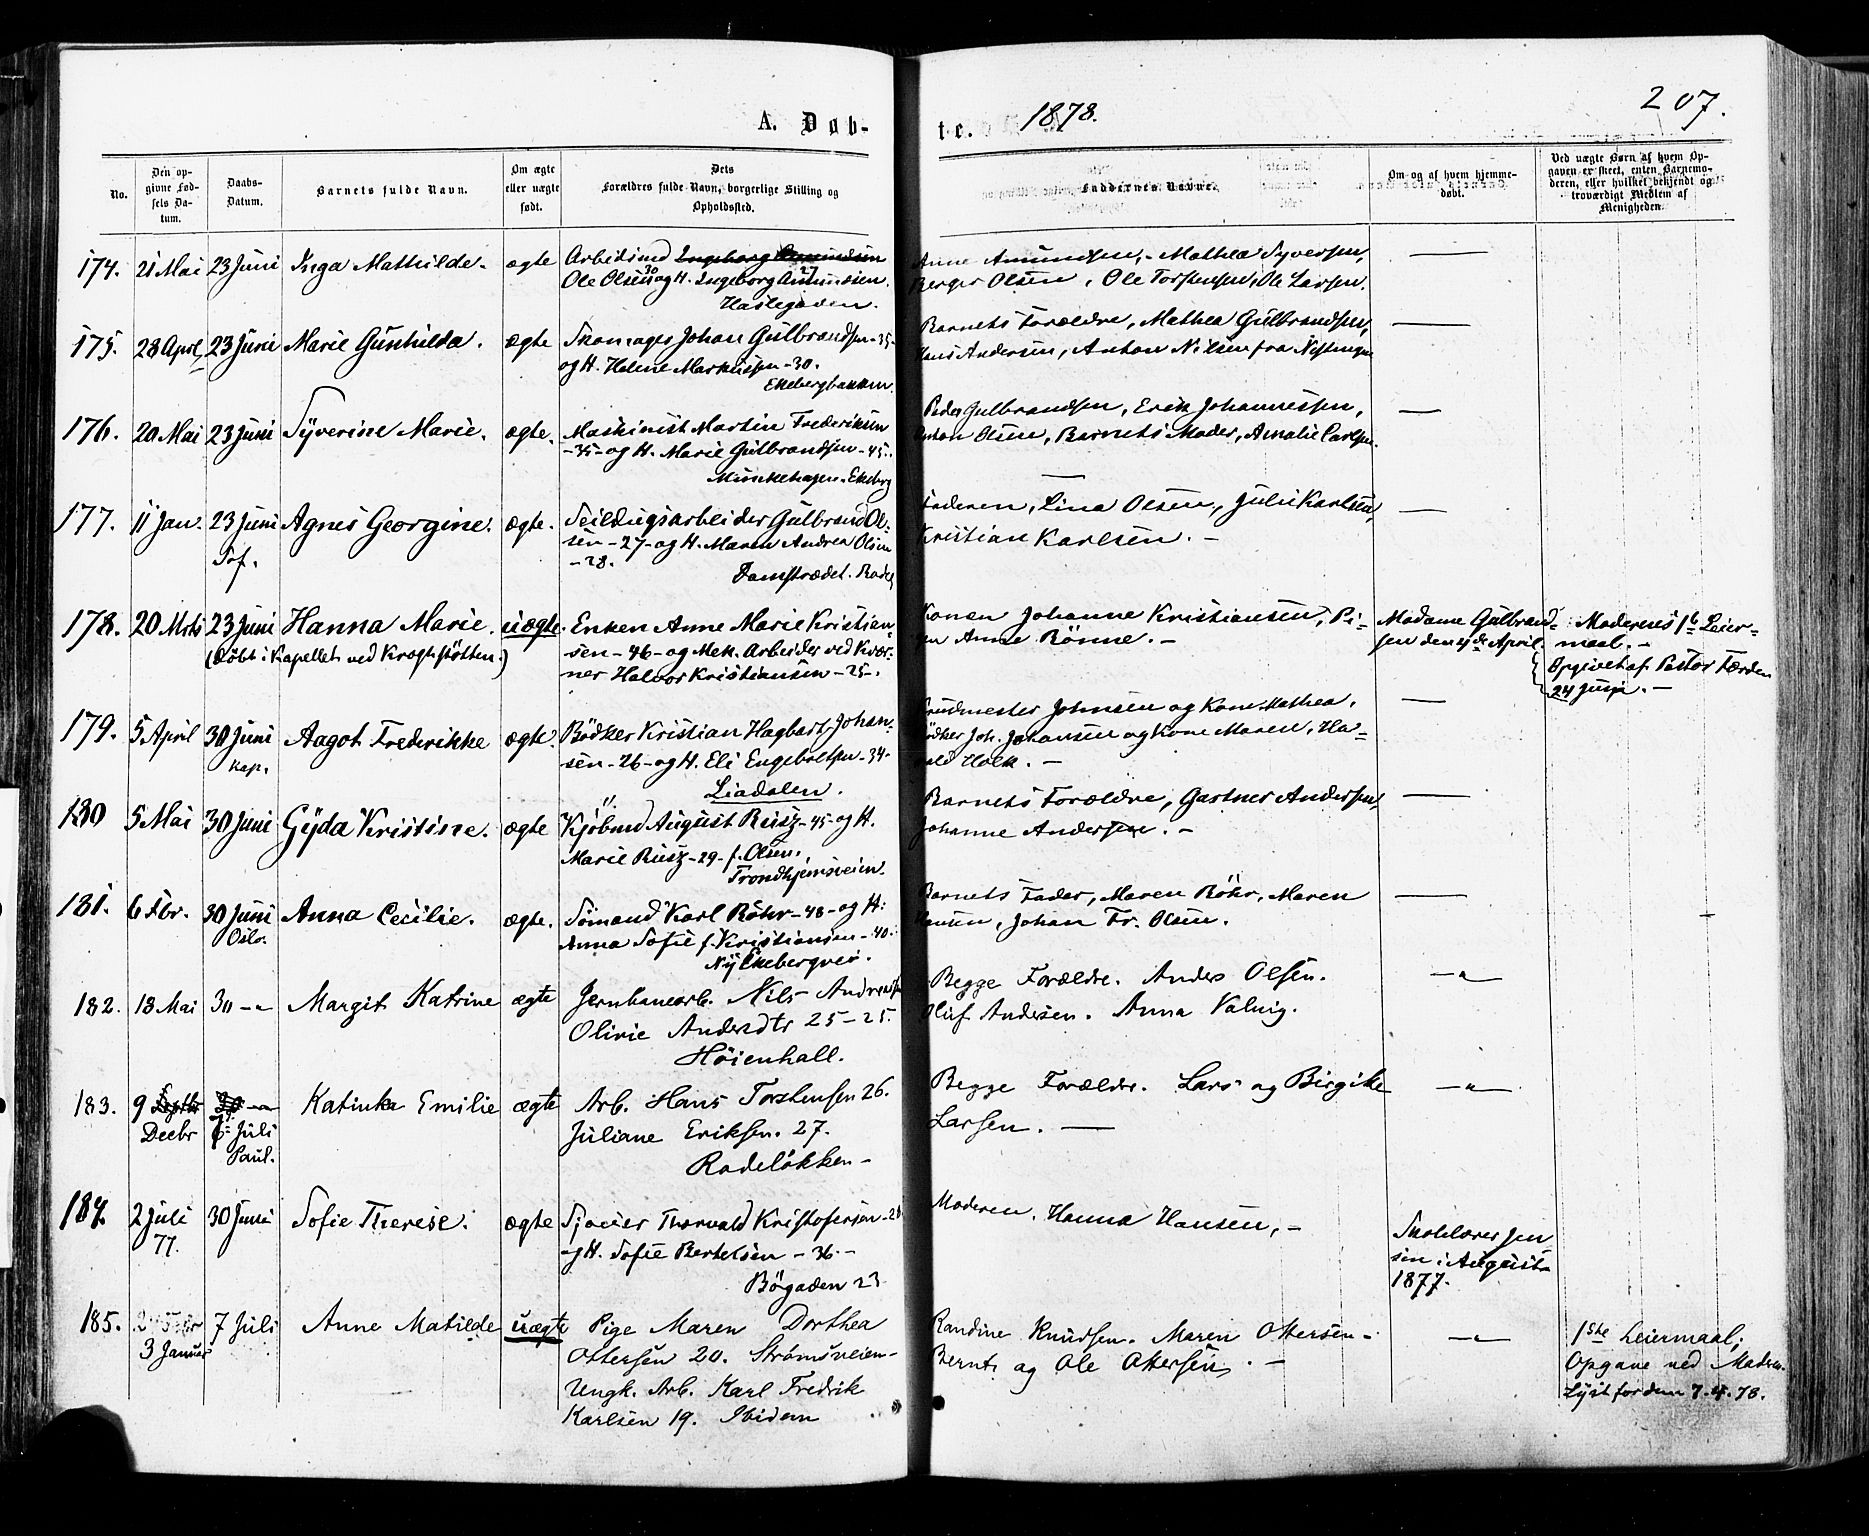 A. Døb-
te.
1878.
207.
No.
Den op-
givne Fød-
sels Da-
tum.
Daabs-
Datum.
Barnets fulde Navn.
Om ægte
eller uægte
født.
Dets
Forældres fulde Navn, borgerlige Stilling og
Opholdssted.
Faddernes Navne.
Om og af hvem hjemme-
døbt.
Ved uægte Børn af hvem Op-
gaven er skeet, enten Barnemo-
deren, eller hvilket bekjendt og
troværdigt Medlem af
Menigheden.
174. 21 Mai 23 Juni Inga Mathilde. ægte Arbeidsmd Ingeborg Amundsen
Ole Olsen 30 og H. Ingeborg Amundsen 27.
Haslegaden.
Anne Amundsen, Mathea Syversen,
Berger Olsen, Ole Torstensen, Ole Larsen.
175. 28 April 23 Juni Marie Gunhilda. ægte Skomager Johan Gulbrandsen - 35 -
og H. Helene Markussen - 30.
Ekebergbakken.
Barnets Forældre, Mathea Gulbrandsen,
Hans Andersen, Anton Nilsen fra
176. 20 Mai 23 Juni Syverine Marie. ægte. Maskinist Martin Frederiksen
- 35 - og H. Marie Gulbrandsen - 45.
Ekeberg
Peder Gulbrandsen, Erik Johannessen,
Anton Olsen, Barnets Moder, Amalie Carlsen.
177. 11 Jan. 23 Juni Agnes Georgine. ægte. Seildugsarbeider Gulbrand Ol-
Sof.
sen - 27 - og H. Maren Andrea Olsen
- 28.
Damstrædet. Rodel
Faderen, Lina Olsen, Julie Karlsen,
Kristian Karlsen. -
178. 20 Mrts 23 Juni Hanna Marie. uægte. Enken Anne Marie Kristian-
(døbt i Kapellet ved Kroghstøtten.)
sen - 46 - og Mek. Arbeider ved Kvær-
ner Halvor Kristiansen - 25 -.
Konen Johanne Kristiansen, Pi-
gen Anne Rönne. -
Madame Gulbrand-
sen den 17de April.
Moderens 1ste Leier-
maal. -
Opgivet af Pastor Færden
24 Juni. -
179. 5 April 30 Juni Aagot Frederikke ægte. Bødker Kristian Hagbart Johan-
kap.
sen - 26 - og H. Eli Engebretsen - 34 -
Liadalen.
Brudmester Johnsen og Kone Mathea,
Bødker Joh. Johansen og Kone Maren, Ha-
rald Holk. -
180 5 Mai 30 Juni Gyda Kristine. ægte Kjøbmd August Rusz - 45 - og H.
Marie Rusz - 29 - f. Olsen.
Trondhjemsveien.
Barnets Forældre, Gartner Andersen,
Johanne Andersen. -
181. 6 Fbr. 30 Juni Anna Cecilie. ægte. Sømand Karl Röhr - 48 - og H.
Oslo.
Anna Sofie f. Kristiansen - 40.
Ny Ekebergvei.
Barnets Fader, Maren Röhr, Maren
Hansen, Johan Fr. Olsen.
182. 18 Mai 30 - " - Margit Katrine ægte Jernbanearb. Nils Andreassen
Olivie Andersdtr 25 - 25.
Høienhall.
Begge Forældre. Anders Olsen.
Oluf Andersen. Anna Valnig.
- " -
183. 9 Septbr 30 - " - Katinka Emilie ægte Arb. Hans Torstensen 26.
Decbr Juli
Paul.
Juliane Eriksen. 27.
Rodeløkken -
Begge Forældre. Lars og Birgithe
Larsen. -
- " -
184. 2 Juli 30 Juni Sofie Therese. ægte Sjauer Thorvald Kristofersen - 28
77.
og H. Sofie Bertelsen - 36 -
Bögaden 23
Moderen, Hanna Hansen, -
Skolelærer Jen
sen i August
1877.
185. 3 Januar 7 Juli Anne Matilde uægte Pige Maren Dorthea
Ottersen 20. Strømsveien -
Ungk. Arb. Karl Fredrik
Karlsen 19. Ibidem
Randine Knudsen. Maren Ottersen -
Bernt og Ole Ottersen. -
- " -
1ste Leiermaal;
Opgave ved Moderen.
Lyst for dem 7.4.78.